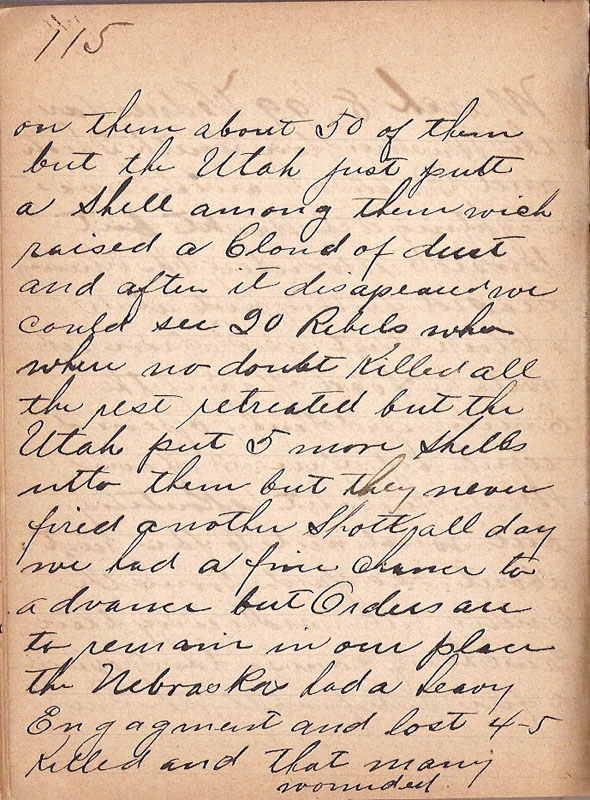 115
on them about 50 of them
but the Utah just putt
a Shell among them wich
raised a Cloud of dust
and after it disapeared we
could see 20 Rebels when
when no doubt Killed all
the rest retreated but the
Utah put 5 more Shells
into them but they never
fired another Shott all day
we had a fine chance to
advance but Orders are
to remain in our place
the Nebraskas had a heavy
Engagment and lost 4-5
Killed and that many
wounded.